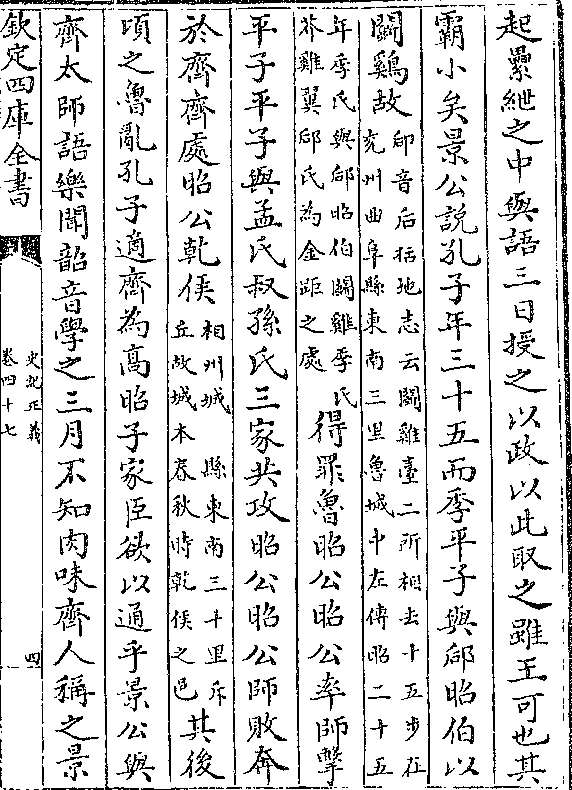 起纍紲之中與語三日授之以政以此取之雖王可也其
霸小矣景公說孔子年三十五而季平子與郈昭伯以
鬬鷄故
郈音后括地志云鬬雞臺二所相去十五步在
兖州曲阜縣東南三里魯城中左傳昭二十五
年季氏與郈昭伯鬬雞季氏
芥雞翼郈氏為金距之處
得罪魯昭公昭公率師擊
平子平子與孟氏叔孫氏三家共攻昭公昭公師敗奔
於齊齊處昭公乾侯
相州城 縣東南三十里斥
丘故城本春秋時乾侯之邑
其後
頃之魯亂孔子適齊為高昭子家臣欲以通乎景公與
齊太師語樂聞韶音學之三月不知肉味齊人稱之景
欽定四庫全書
史記正義
卷四十七
四